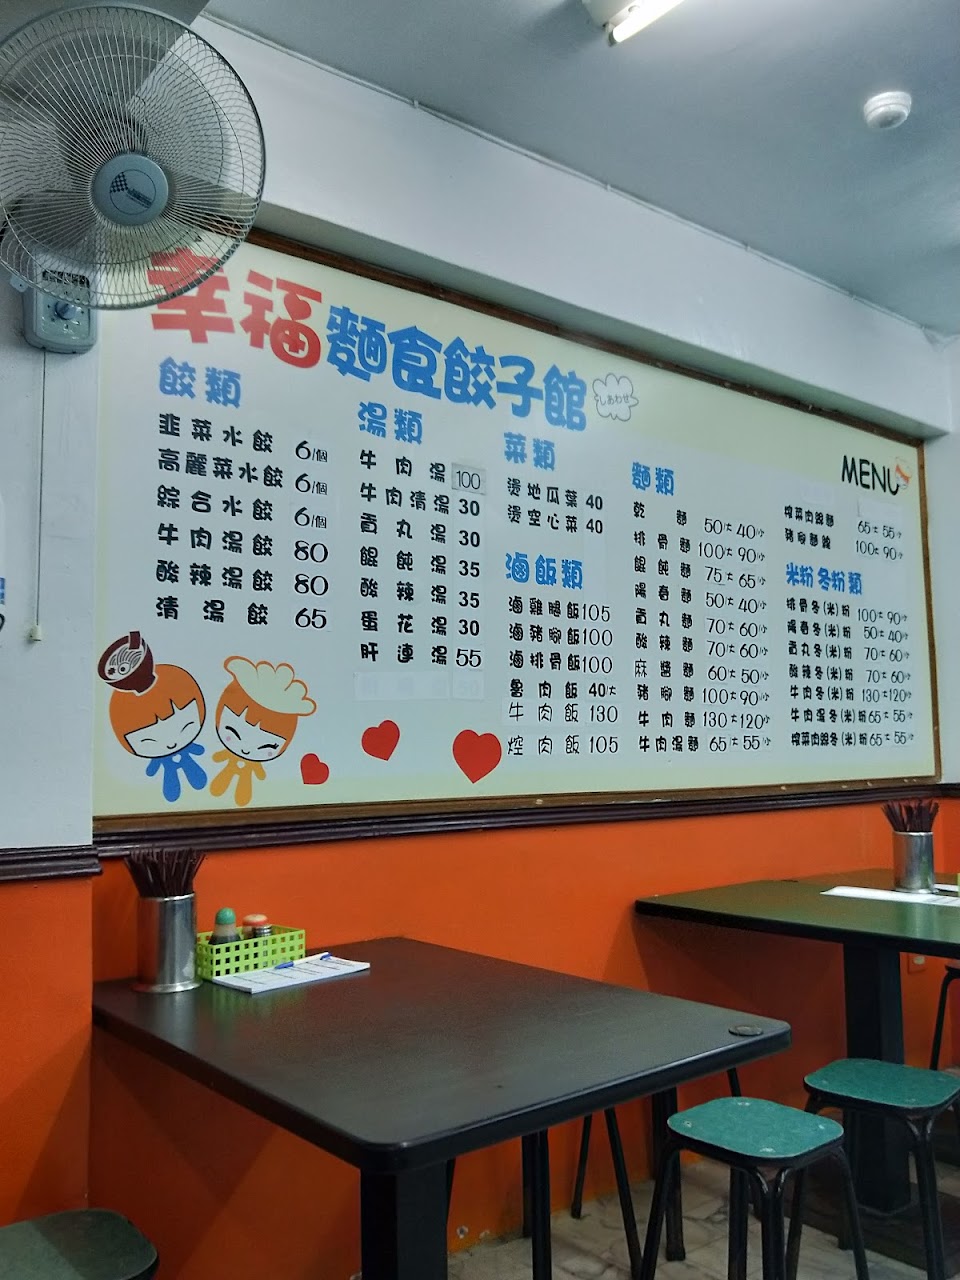 幸福麵食餃子館
しあわせ
MENU
餃類
韭菜水餃 6/個
高麗菜水餃 6/個
綜合水餃 6/個
牛肉湯餃 80
酸辣湯餃 80
清湯餃 65
湯類
牛肉湯 100
牛肉清湯 30
貢丸湯 30
餛飩湯 35
酸辣湯 35
蛋花湯 30
肝連湯 55
菜類
燙地瓜葉 40
燙空心菜 40
滷飯類
滷雞腿飯 105
滷豬腳飯 100
滷排骨飯 100
魯肉飯 40大
牛肉飯 130
焢肉飯 105
麵類
乾麵 50大 40小
排骨麵 100大 90小
餛飩麵 75大 65小
陽春麵 50大 40小
貢丸麵 70大 60小
酸辣麵 70大 60小
麻醬麵 60大 50小
豬腳麵 100大 90小
牛肉麵 130大 120小
牛肉湯麵 65大 55小
榨菜肉絲麵 65大 55小
豬腳麵線 100大 90小
米粉冬粉類
排骨冬(米)粉 100大 90小
陽春冬(米)粉 50大 40小
貢丸冬(米)粉 70大 60小
酸辣冬(米)粉 70大 60小
牛肉冬(米)粉 130大 120小
牛肉湯冬(米)粉 65大 55小
榨菜肉絲冬(米)粉 65大 55小